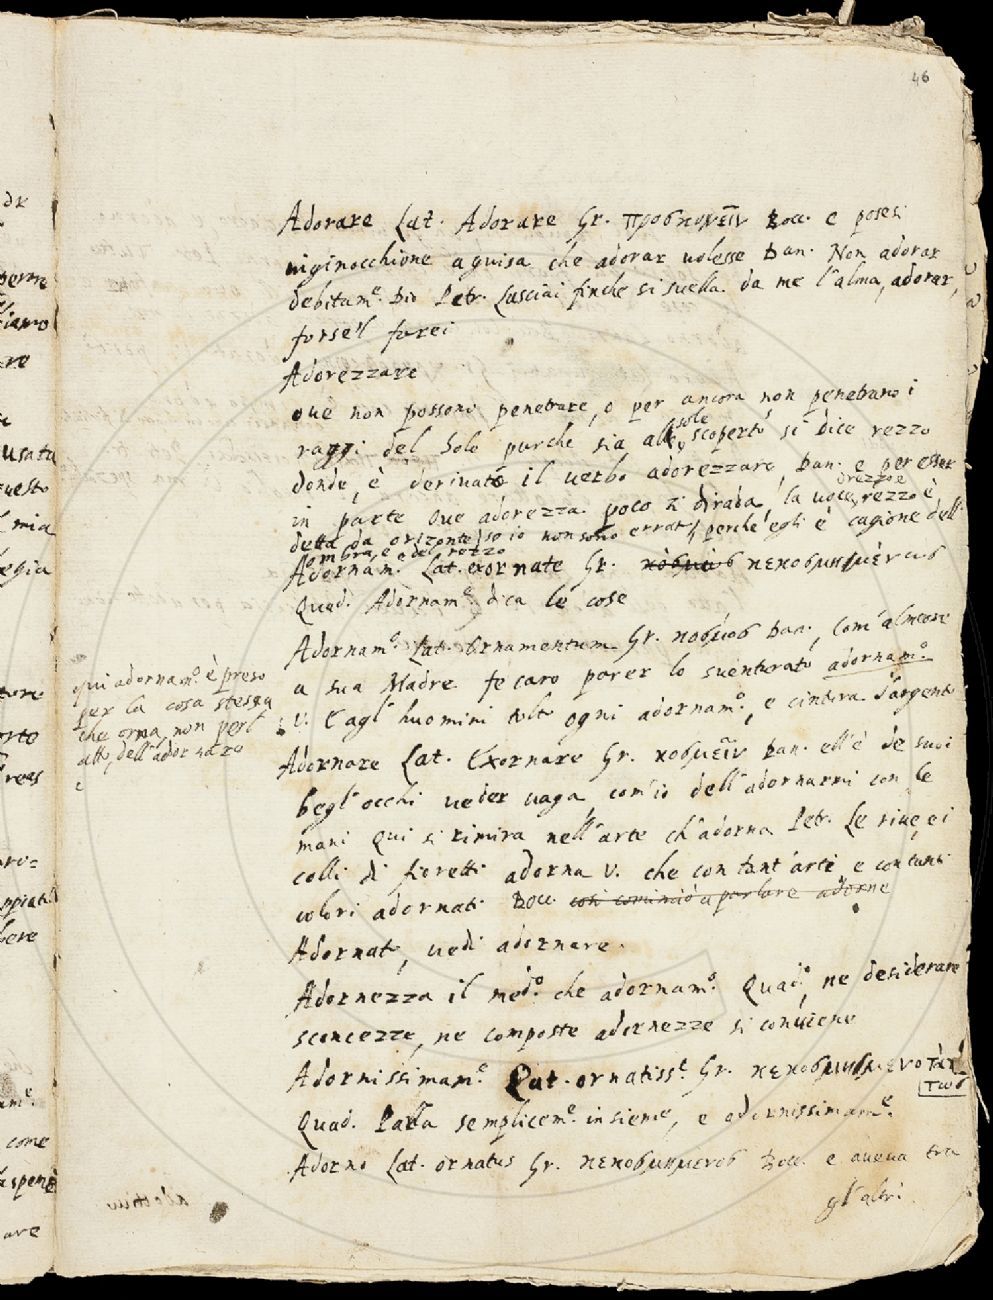 46
Adorare Lat. Adorare Gr. προσκυνεῖν Bocc. e posesi
inginocchione a guisa che adorar volesse Dan. Non adorar
debitam.e Dio Petr. Lasciai finche si svella da me l'alma, adorar,
forse'l farei
Adorezzare
ove non possono penetrare, o per ancora non penetrano i
raggi del Sole purche sia al sole scoperto si dice rezzo
donde è derinato il verbo adorezzare, Dan. e per esser
in parte ove adorezza poco si dirada, la voce orezzo e rezzo è
detta da orizonte, so io non sono errato, perche egli è cagione dell'
ombra, e del rezzo
Adornam.e Lat. exornate Gr. κεκοσμημένως
Quad. Adornam.e dica le cose
Adornam.o Lat. Ornamentum Gr. κόσμος Dan. Com' almeone
a sua Madre fe caro parer lo sventurato adornam.o
V. E agl' huomini tolto ogni adornam.o, e cintura d'argento
qui adornam.o è preso
per la cosa stessa
che orna, non perl'
atto, dell'adornare
Adornare Lat. Exornare Gr. κοσμεῖν Dan. ell'è de suoi
begl'occhi veder vaga, com'io dell'adornarmi con le
mani Qui si rimira nell'arte ch'adorna Petr. Le rive, ei
colli di fioretti adorna V. che con tant'arte e con tanti
colori adornati Bocc. così cominciò a parlare adorne
Adornato, vedi adornare.
Adornezza il med.o che adornam.o Quad. ne desiderare
sconcezze, ne composte adornezze si conviene
Adornissimam.e Lat. ornatiss.e Gr. κεκοσμημενοτάτ
τως
Quad. Parla semplicem.e insieme, e adornissimam.e
Adorno Lat. ornatus Gr. κεκοσμημενος Bocc. e aveva tra
gl'altri